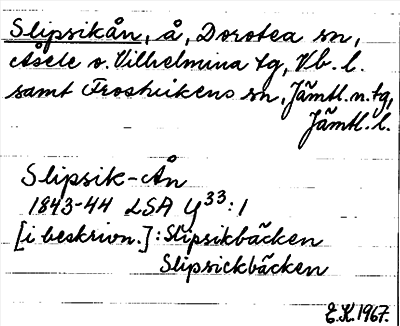 Slipsikån, å, Dorotea sn,
Åsele o. Vilhelmina tg, Vb. l.
samt Frostvikens sn, Jämtl. n. tg,
Jämtl. l.
Slipsik-Ån
1843-44 LSA Y 33:1
[i beskrivn.]: Slipsikbäcken
Slipsickbäcken
E.K. 1967.